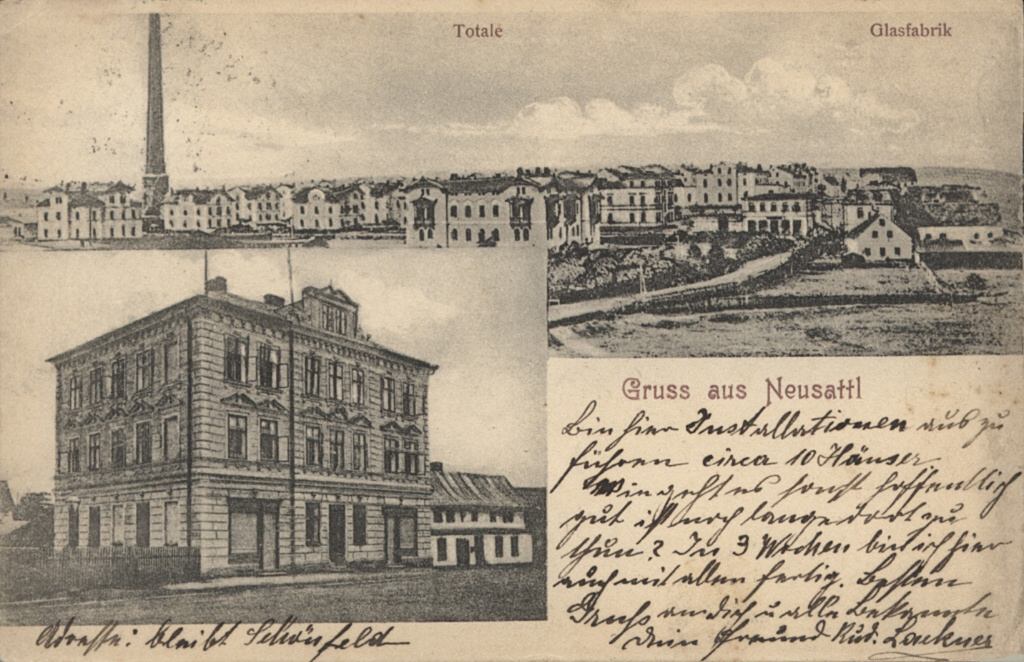 Totale
Glasfabrik
Gruss aus Neusattl
Bin hier Installationen aus zu
führen circa 10 Häuser
Wie geht es sonst hoffentlich
gut ist noch lange dort zu
thun? In 3 Wochen bin ich hier
auch mit allem fertig. Besten
Gruss an dich u alle Bekannte
Dein Freund Rud. Lackner
Adresse: bleibt Schönfeld